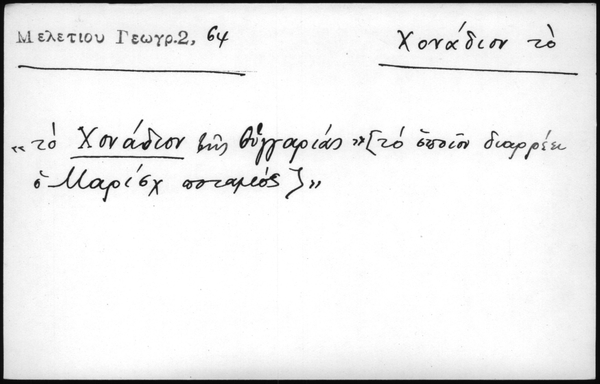 Μελετίου Γεωγρ.2, 64
Χονάδιον τὸ
«τὸ Χονάδιον τῆς Οὑγγαρίας» [τὸ ὁποῖον διαρρέει
ὁ Μαρίσχ ποταμός]»